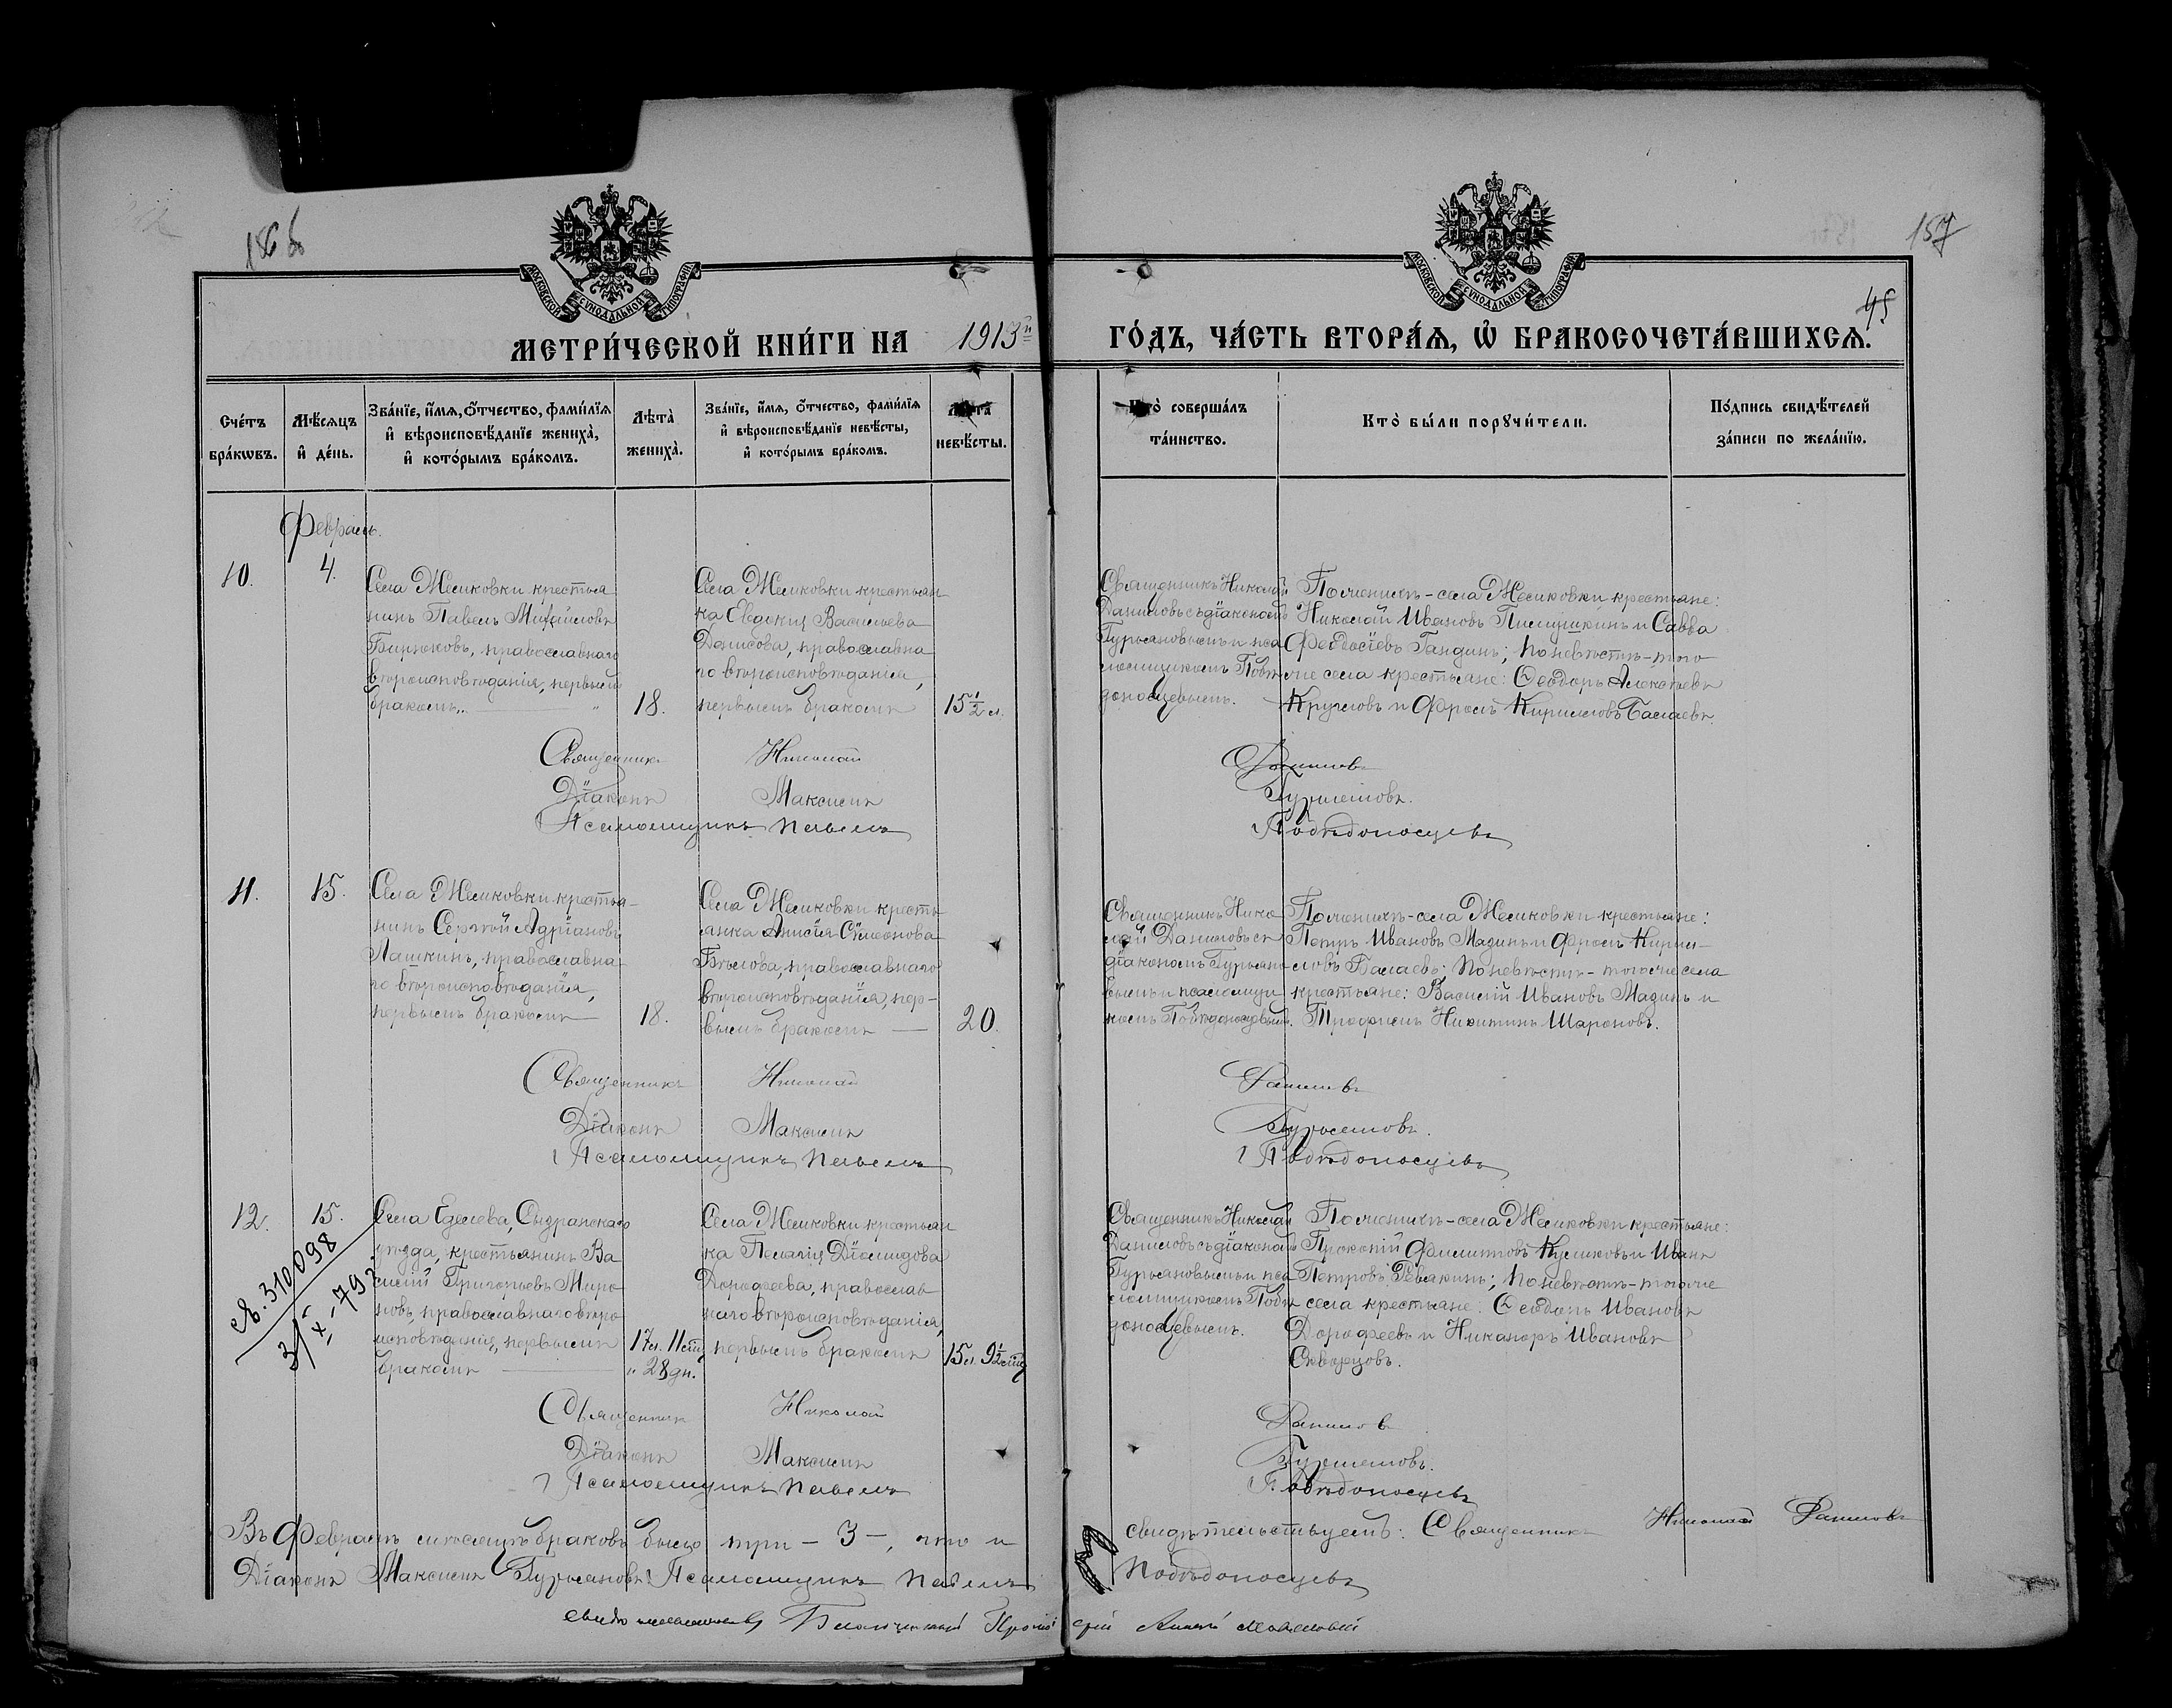 156 об
157
45
МОСКОВСКОЙ СѴНОДАЛЬНОЙ ТИПОГРАФІИ
МОСКОВСКОЙ СѴНОДАЛЬНОЙ ТИПОГРАФІИ
МЕТРИ́ЧЕСКОЙ КНИ́ГИ НА 1913й ГО́ДЪ, ЧА́СТЬ ВТОРА́Ѧ, Ѡ҆ БРАКОСОЧЕТА́ВШИХСѦ.
Сче́тъ бра́кѡвъ.
Мѣ́сѧцъ и҆ де́нь.
Зва́нїе, и҆́мѧ, ѻ҆́тчество, фами́лїѧ
и҆ вѣроисповѣ́данїе жениха̀,
и҆ кото́рымъ бра́комъ.
Лѣта̀ жениха̀.
Зва́нїе, и҆́мѧ, ѻ҆́тчество, фами́лїѧ
и҆ вѣроисповѣ́данїе невѣ́сты,
и҆ кото́рымъ бра́комъ.
Лѣта̀ невѣ́сты.
Кто̀ соверша́лъ
та́инство.
Кто̀ бы́ли порꙋчи́тели.
По́дпись свидѣ́телей
за́писи по жела́нїю.
Февраль.
10.
4.
Села Жемковки крестья
нинъ Павелъ Михайловъ
Бирюковъ, православнаго
вѣроисповѣданія, первымъ
бракомъ.
18.
Села Жемковки крестьян
ка Евдокія Васильева
Денисова, православна
го вѣроисповѣданія,
первымъ бракомъ
15 1/2 л.
Священникъ Николай
Даниловъ съ діакономъ
Гурьяновымъ и пса
ломщикомъ Побѣ
доносцевымъ.
По женихѣ - села Жемковки крестьяне:
Николай Ивановъ Пилушкинъ и Савва
Феодосіевъ Гандинъ; по невѣстѣ - того
же села крестьяне: Ѳеодоръ Алексѣевъ
Кругловъ и Фролъ Кирилловъ Балаевъ.
Священникъ Николай Даниловъ
Діаконъ Максимъ Гурьяновъ.
Псаломщикъ Павелъ Побѣдоносцевъ
11.
15.
Села Жемковки крестья-
нинъ Сергѣй Адріановъ
Лашкинъ, православна-
го вѣроисповѣданія,
первымъ бракомъ
18.
Села Жемковки кресть
янка Анисія Сѵмеонова
Бѣлова, православнаго
вѣроисповѣданія, пер-
вымъ бракомъ
20.
Священникъ Нико
лай Даниловъ съ
діакономъ Гурьяно
вымъ и псаломщи
комъ Побѣдоносцевымъ.
По женихѣ - села Жемковки крестьяне:
Петръ Ивановъ Мазинъ и Фролъ Кирил-
ловъ Балаевъ; по невѣстѣ - того же села
крестьяне: Василій Ивановъ Мазинъ и
Трофимъ Никитинъ Шароновъ.
Священникъ Николай Даниловъ
Діаконъ Максимъ Гурьяновъ.
Псаломщикъ Павелъ Побѣдоносцевъ
12.
15.
св. 310098
31/X-79г
Села Еделева, Сызранскаго
уѣзда, крестьянинъ Ва
силій Григорьевъ Миро
новъ, православнаго вѣро
исповѣданія, первымъ
бракомъ
17 л. 11 мѣс.
" 28 дн.
Села Жемковки крестьян
ка Пелагія Діомидова
Дорофеева, православ
наго вѣроисповѣданія,
первымъ бракомъ
15 л. 9 1/2 мѣс.
Священникъ Николай
Даниловъ съ діакономъ
Гурьяновымъ и пса
ломщикомъ Побѣ
доносцевымъ.
По женихѣ - села Жемковки крестьяне:
Прокопій Филипповъ Куликовъ и Иванъ
Петровъ Ревякинъ; по невѣстѣ - того же
села крестьяне: Ѳеодоръ Ивановъ
Дорофеевъ и Никаноръ Ивановъ
Скворцовъ.
Священникъ Николай Даниловъ
Діаконъ Максимъ Гурьяновъ.
Псаломщикъ Павелъ Побѣдоносцевъ
Въ Февралѣ мѣсяцѣ браковъ было три - 3 -, что и свидѣтельствуемъ: Священникъ Николай Даниловъ
Діаконъ Максимъ Гурьяновъ Псаломщикъ Павелъ Побѣдоносцевъ
Благочинный Протоіерей